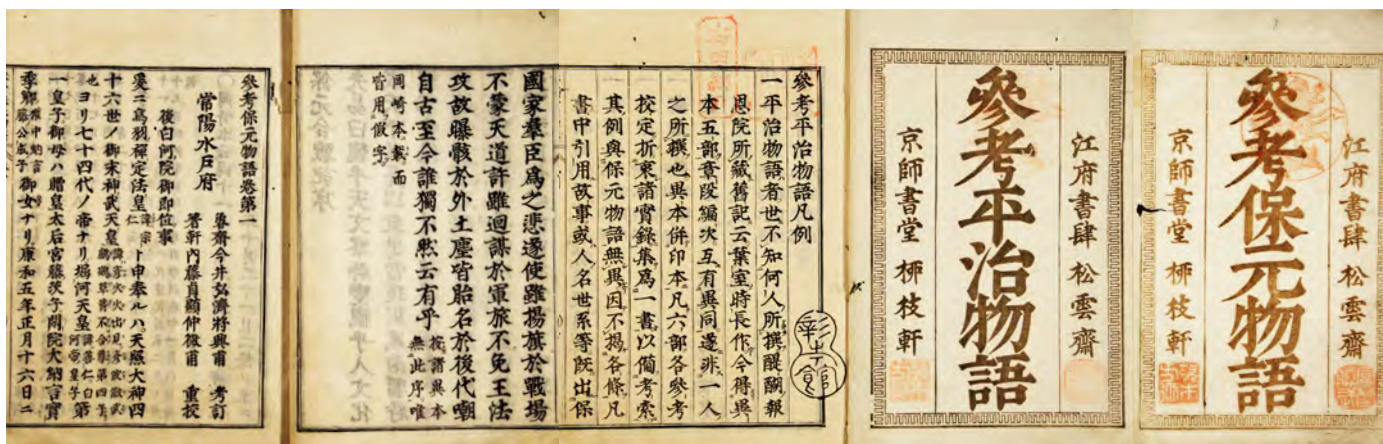 江府書肆 松雲齋
參考保元物語
京師書堂 柳枝軒
江府書肆 松雲齋
參考平治物語
京師書堂 柳枝軒
彰考館
參考平治物語凡例
一平治物語者世不知何人所撰醍醐報
恩院所藏舊記云葉室時長作今得異
本五部章段編次互有異同遂非一人
之所撰也異本併印本凡六部各參考
校定折衷諸實錄集爲一書以備考索
其例與保元物語無異因不揭各條凡
書中引用故事或人名世系等既出保
國家羣臣爲之悲遂使雖揚旗於戰場
不蒙天道許雖迴謀於軍旅不免王法
攻故曝骸於外土塵皆胎名於後代嘲
自古至今誰獨不然云有乎 按諸異本無此序唯
岡崎本載而
皆用假字
參考保元物語卷第一
常陽水戶府
魯齋今井弘濟將興甫 考訂
箸軒內藤貞顯仲微甫 重校
後白河院御即位事
爰ニ鳥羽禪定法皇ト申奉ルハ天照大神四
十六世ノ御末神武天皇
ヨリ七十四代ノ帝ナリ堀河天皇第
一皇子御母ハ贈皇太后宮藤茨子閑院大納言實
季卿御女ナリ康和五年正月十六日ニ